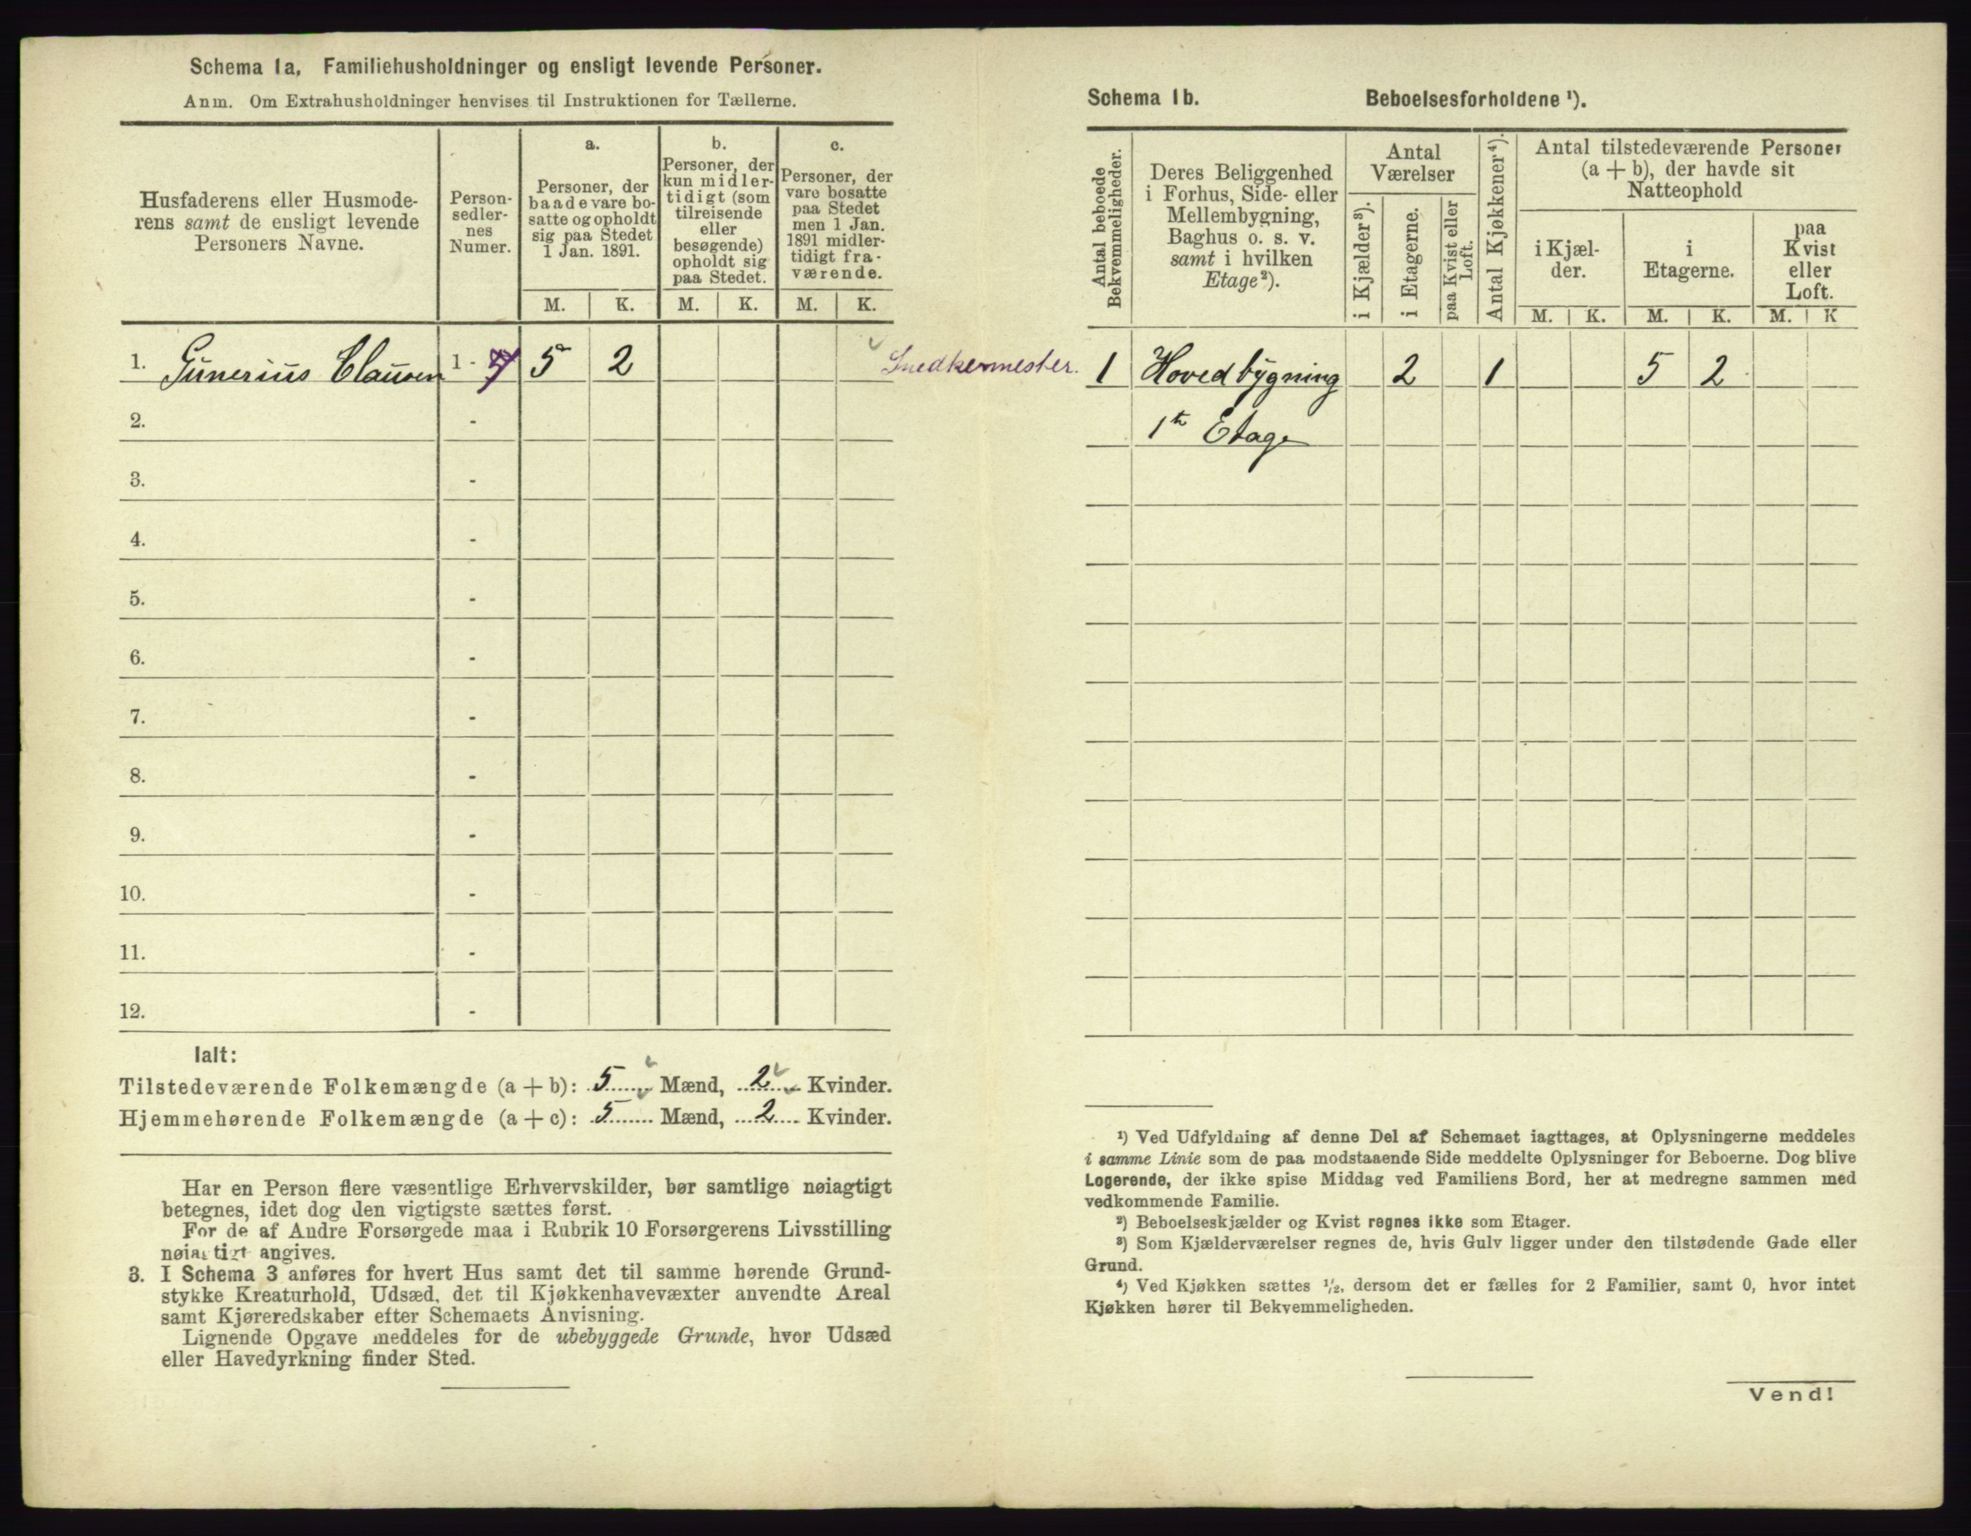 Schema 1a, Familiehusholdninger og ensligt levende Personer.
Anm. Om Extrahusholdninger henvises til Instruktionen for Tællerne.
Husfaderens eller Husmode-
rens samt de ensligt levende
Personers Navne.
Person-
sedler-
nes
Numer.
a.
Personer, der
baade vare bo-
satte og opholdt
sig paa Stedet
1 Jan. 1891.
b.
Personer, der
kun midler-
tidigt (som
tilreisende
eller
besøgende)
opholdt sig
paa Stedet.
c.
Personer, der
vare bosatte
paa Stedet
men 1 Jan.
1891 midler-
tidigt fra-
værende.
M. K. M. K. M. K.
1. Gunerius Clausen 1 - 7 5 2 Snedkermester.
2. -
3. -
4. -
5. -
6. -
7. -
8. -
9. -
10. -
11. -
12. -
Ialt:
Tilstedeværende Folkemængde (a + b): 5 Mænd, 2 Kvinder.
Hjemmehørende Folkemængde (a + c): 5 Mænd, 2 Kvinder.
Har en Person flere væsentlige Erhvervskilder, bør samtlige nøiagtigt
betegnes, idet dog den vigtigste sættes først.
For de af Andre Forsørgede maa i Rubrik 10 Forsørgerens Livsstilling
nøiagtigt angives.
3. I Schema 3 anføres for hvert Hus samt det til samme hørende Grund-
stykke Kreaturhold, Udsæd, det til Kjøkkenhavevæxter anvendte Areal
samt Kjøreredskaber efter Schemaets Anvisning.
Lignende Opgave meddeles for de ubebyggede Grunde, hvor Udsæd
eller Havedyrkning finder Sted.
Schema 1b. Beboelsesforholdene ¹).
Antal beboede
Bekvemmeligheder.
Deres Beliggenhed
i Forhus, Side- eller
Mellembygning,
Baghus o. s. v.
samt i hvilken
Etage²).
Antal
Værelser
i Kjælder³).
i Etagerne.
paa Kvist eller
Loft.
Antal Kjøkkener⁴).
Antal tilstedeværende Personer
(a + b), der havde sit
Natteophold
i Kjæl-
der.
i
Etagerne.
paa
Kvist
eller
Loft.
M. K. M. K. M. K
1 Hovedbygning 2 1 5 2
1ste Etage
¹) Ved Udfyldning af denne Del af Schemaet iagttages, at Oplysningerne meddeles
i samme Linie som de paa modstaaende Side meddelte Oplysninger for Beboerne. Dog blive
Logerende, der ikke spise Middag ved Familiens Bord, her at medregne sammen med
vedkommende Familie.
²) Beboelseskjælder og Kvist regnes ikke som Etager.
³) Som Kjælderværelser regnes de, hvis Gulv ligger under den tilstødende Gade eller
Grund.
⁴) Ved Kjøkken sættes ½, dersom det er fælles for 2 Familier, samt 0, hvor intet
Kjøkken hører til Bekvemmeligheden.
Vend!